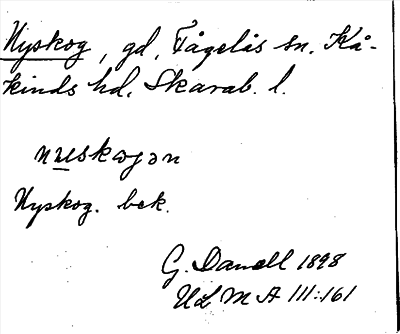 Nyskog, gd, Fågelås sn. Kå-
kinds hd, Skarab. l.
nuskogən
Nyskog. bek.
G. Danell 1898
ULMA 111:161